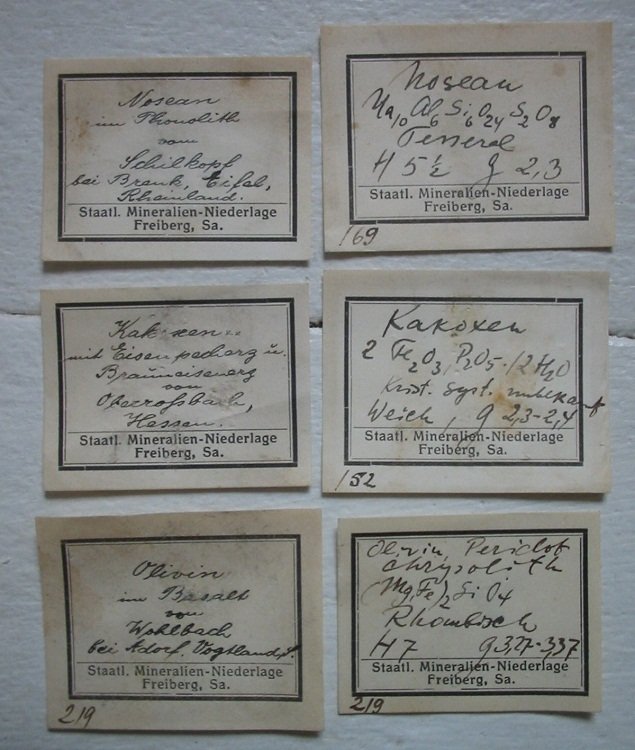 Nosean
im Phonolith
vom
Schilkopf
bei Brenk, Eifel,
Rheinland.
Staatl. Mineralien-Niederlage
Freiberg, Sa.
Nosean
Na10 Al6 Si6 O24 S2 O8
Tesseral
H 5 ½ g 2,3
Staatl. Mineralien-Niederlage
Freiberg, Sa.
169
Kakoxen
mit Eisenpecherz u.
Brauneisenerz
von
Oberroßbach,
Hessen.
Staatl. Mineralien-Niederlage
Freiberg, Sa.
Kakoxen
2 Fe2O3 P2O5. 12 H2O
Krist. Syst. unbekannt
Weich, g 2,3-2,4
Staatl. Mineralien-Niederlage
Freiberg, Sa.
152
Olivin
im Basalt
von
Wohlbach
bei Adorf, Vogtland
Staatl. Mineralien-Niederlage
Freiberg, Sa.
219
Olivin, Peridot
Chrysolith
(Mg,Fe)2 Si O4
Rhombisch
H 7 g 3,27-3,37
Staatl. Mineralien-Niederlage
Freiberg, Sa.
219